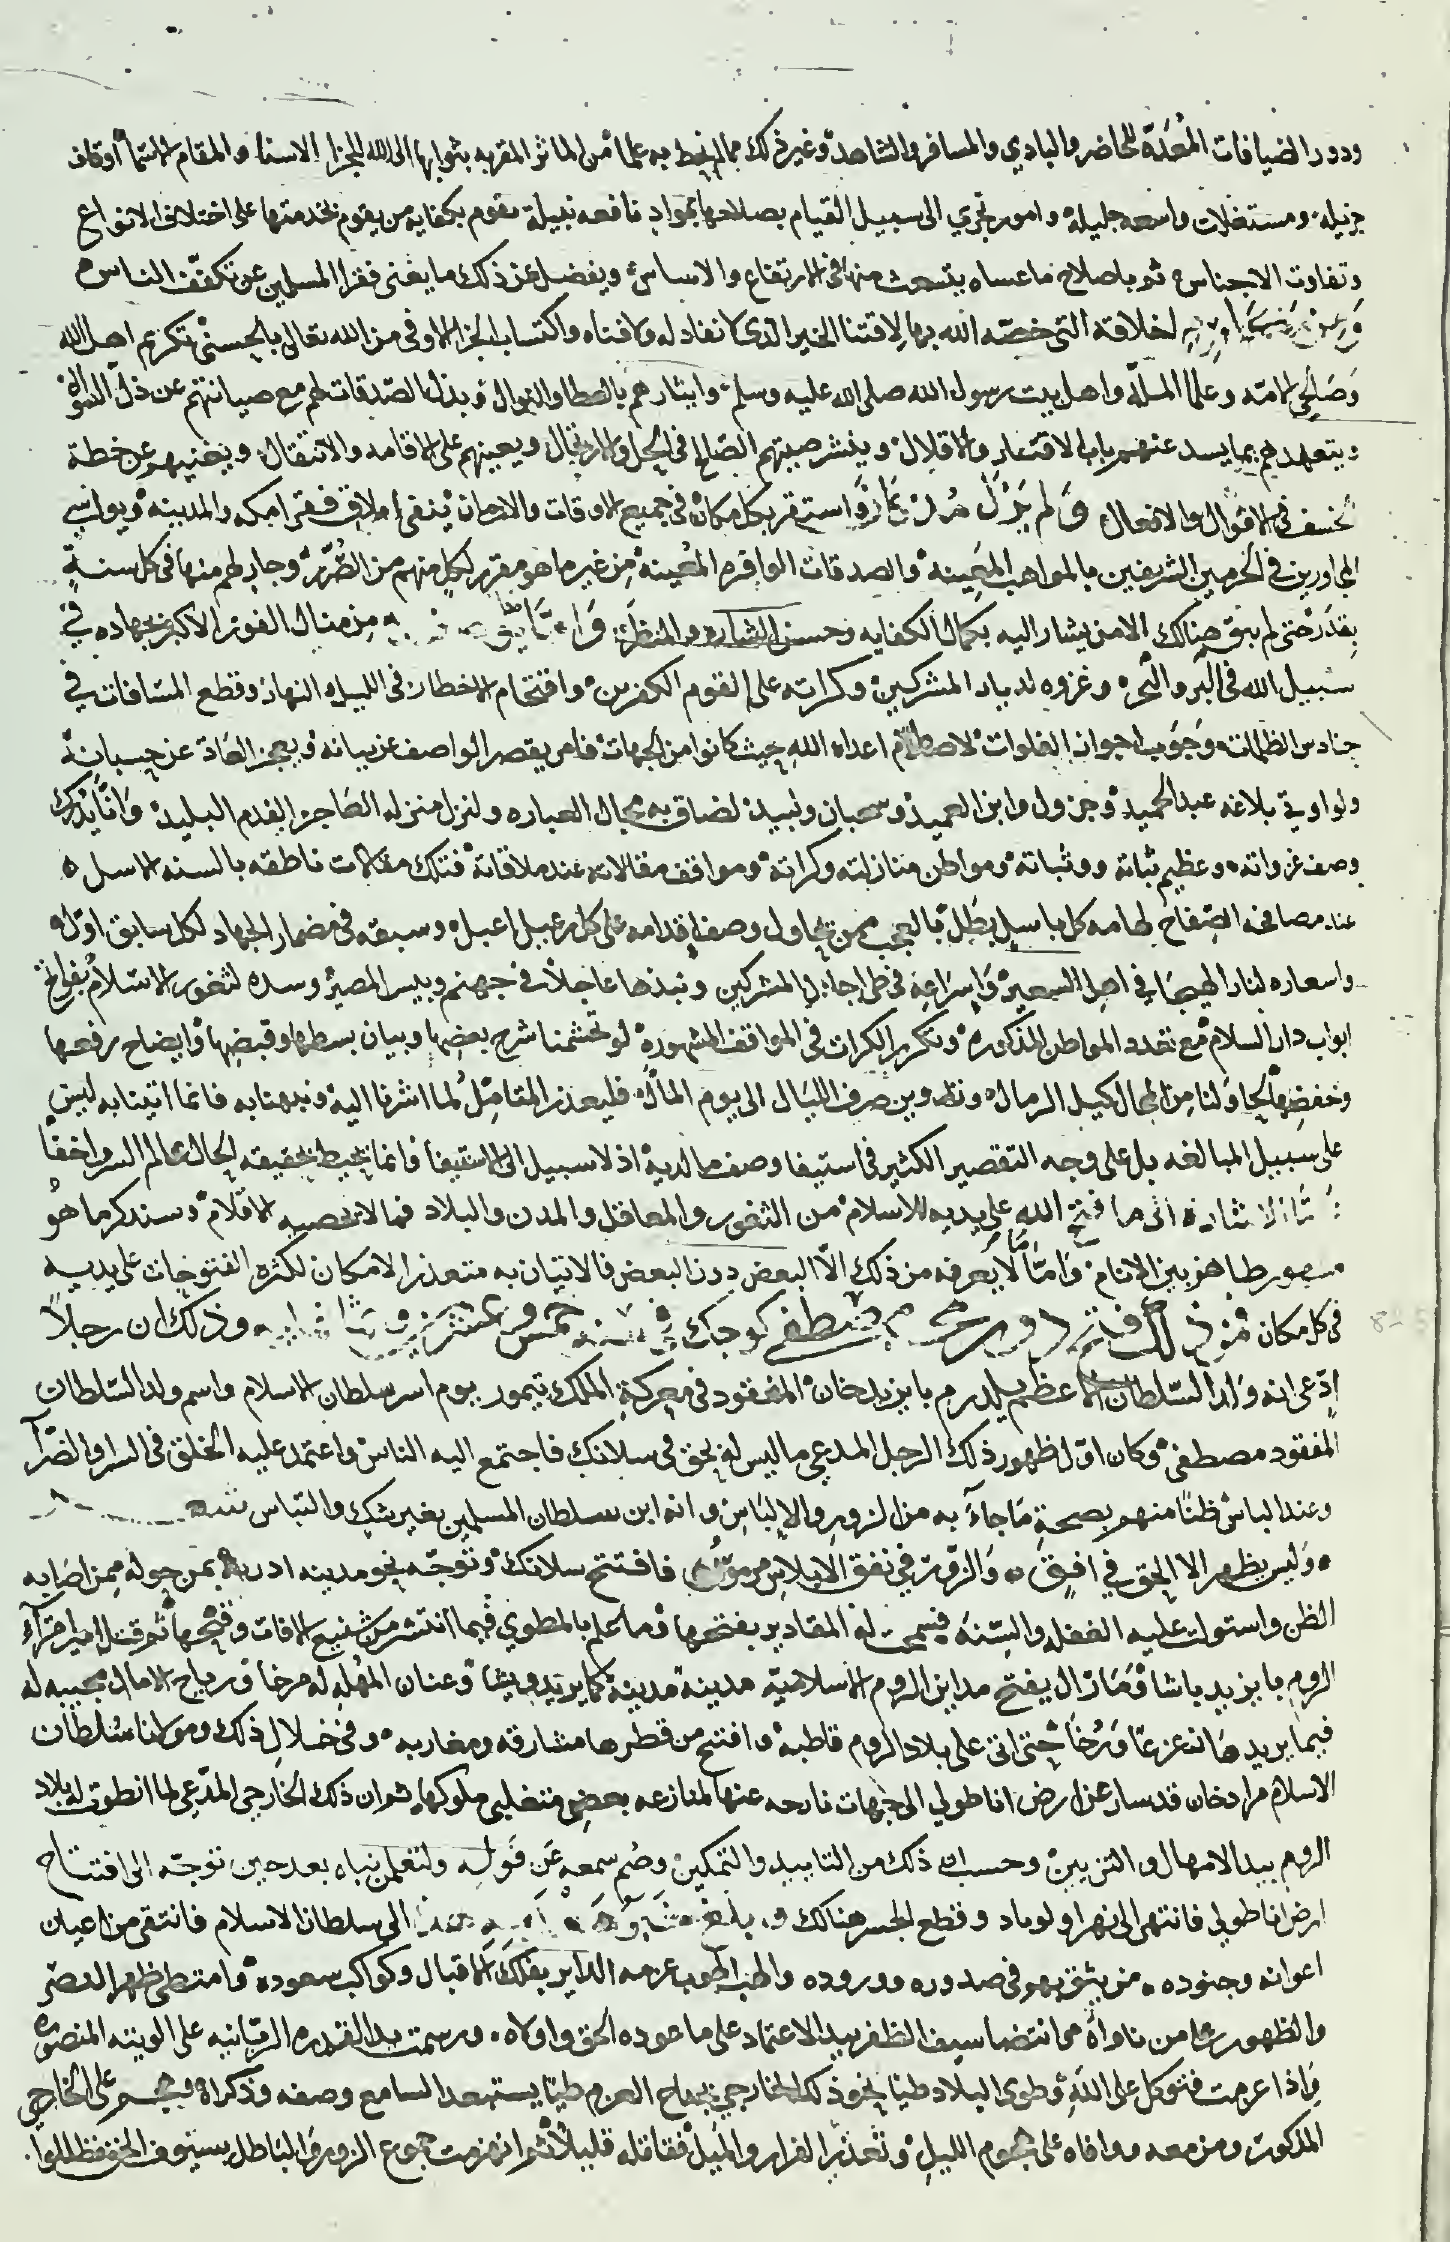 ودور الضيافات المُعَدّة للحاضر والبادي والمسافر والشاهد وغير ذلك مما لم نحط به علما من الماثر المقربه بثوابها الى الله للجزا الاسنا والمقام الاسما اوقاف
جزيله ومستغلات واسعه جليله وامور تجري الى سبيل القيام بصلاحها بمواد نافعه نبيلة تقوم بكفايه من يقوم بخدمتها على اختلاف الانواع
وتفاوت الاجناس ثم باصلاح ما عساه يتشعث منها في الارتفاع والاساس ويفضل عن ذلك ما يغنى فقرا المسلمين عن تكفّف الناس
لخلافته التي خصّه الله بها لاقتنا الخير الذى لا نفاد له ولا فناه واكتساب الجزا الاوفى من الله تعالى بالحسنى تكريم اهل الله
وصالحي الامّه وعلما الملّة واهل بيت رسول الله صلى الله عليه وسلم وايثارهم بالعطا والنوال وبذل الصّدقات لهم مع صيانتهم عن ذلّ السوال
ويتعهدهم بما يسد عنهم باب الاقتار والاقلال وينشر صيتهم الصّالح في الحل والارتحال ويعينهم على الاقامه والانتقال ويغنيهم عن خطة
الخسف في الاقوال والافعال ولم يزل واستقر بكل مكان في جميع الاوقات والاحيان ينفى املاق فقرا مكه والمدينه ويواسي
المجاورين في الحرمين الشريفين بالمواهب والصدقات الوافره المعينه من غير ما هو مقرر لكل منهم من الصُّرَر وجار لهم منها في كل سنةٍ
بقدر حتى لم يبق هنالك الا من يشار اليه بكمال الكفايه وحسن الشاره والمنظر من منال الفوز الاكبر بجهاده في
سبيل الله في البر والبحر وغزوه لديار المشركين وكراته على القوم الكفرين واقتحام الاخطار فى الليل والنهار وقطع المسافات في
حنادس الظلمات وجوب اجواز الفلوات لاصطلام اعداء الله حيث كانوا من الجهات فامر يقصر الواصف عن بيانه ويعجز العَادّ عن حسبانه
ولو اوتي بلاغه عبد الحميد وجرول وابن العميد وسحبان ولبيد لضاق به مجال العباره ولنزل منزله العاجز الفدم البليد وانّا يدرك
وصف غزواته وعظيم ثباته ووثباته ومواطن منازلته وكراته ومواقف مقالاته عند ملاقاته فتلك مقامات ناطقه بالسنه الاسل
عند مصافحه الصّفاح لهامه كل باسل بطل بالعجب ممن يحاول وصف اقدامه على كل رعبل اعبل وسبقه في مضمار الجهاد لكل سابق اوّل
واسعاره لنار الهيجا في اهل السعير واسراعه في طى المشركين ونبذها عاجلا في جهنم وبيس المصير وسده لثغور الاسلام بفواتح
ابواب دار السلام مع تعدد المواطن المذكوره وتكرر الكرات في المواقف المشهوره لو تجشمنا شرح بعضها وبيان بسطها وقبضها وايضاح رفعها
وخفضها لحاولنا من المحال كيل الرمال وتدوين صرف الليال الى يوم المال فليعذر المتامّلُ لما اشرنا اليه ونبهنا به فانما اتينا به ليس
على سبيل المبالغه بل على وجه التقصير الكثير في استيفا وصف ما لديه اذ لا سبيل الى الاستيفا وانما يحيط بحقيقه الحال عالم السر واخفا
الاشاره الى ما فتح الله على يديه للاسلام من الثغور والمعاقل والمدن والبلاد فمما لا تحصيه الاقلام وسنذكر ما هُو
مشهور ظاهر بين الانام وامّا لا يعرفه من ذلك الّا البعض دون البعض فالاتيان به متعذر الامكان لكثره الفتوحات على يديه
في كل مكان فمن ذلك فتح مصطفى كوجك في سنه خمس وعشرين وثمانمايه وذلك ان رجلاً
ادّعى انه ولد السّلطان الاعظم يلدرم بايزيد خان المفقود في معركة الملك تيمور يوم اسر سلطان الاسلام واسم ولد السّلطان
المفقود مصطفى وكان اوّل ظهور ذلك الرجل المدعى ما ليس له بحق في سلانك فاجتمع اليه الناس واعتمد عليه الخلق في السرا والضّرا
وعند الباس ظنّا منهم بصحة ما جاء به من الزور والالباس وانه ابن سلطان المسلمين بغير شك والتباس شعر
وليس يظهر الا الحق في افق والزّور في نفق الابلاس فافتتح سلانك وتوجّه نحو مدينه ادرنه بمن حوله ممن اصابه
الظن واستولت عليه الغفله والسّنه فسمحت له المقادير بفتحها وما علم بالمطوي فيما انتشر من شنيع الافات وقبحها ثم قتل امير امراء
الروم بايزيد باشا وما زال يفتح مداين الروم الاسلاميّة مدينة مدينة كما يريد ويشا وعنان المهله له مرخا ورياح الامال مجيبه له
فيما يريدها نه عزعا ورُخا حتى اتى على بلاد الروم قاطبه وافتتح من قطرها مشارقه ومغاربه وفي خلال ذلك ومولانا سُلطان
الاسلام مرادخان قد سار عن ارض اناطولي الى جهات نازحه عنها لمنازعه بعض متغلبى ملوكها ثم ان ذلك الخارجي المدّعي لما انطوت له بلاد
الروم بيد الامهال والتزيين وحسب انّ ذلك من التاييد والتمكين وصُم سمعه عن قوله ولتعلمن نباه بعد حين توجّه الى افتتاح
ارض اناطولي فانتهى الى نهر اولوباد وقطع الجسر هنالك وبلغ الى سلطان الاسلام فانتقى من اعيان
اعوانه وجنوده من يثق بهو في صدوره ووروده واطناب عزمه الداير بفلك الاقبال وكواكب سعوده وامتطى ظهر النصر
والظهور على من ناواه وانتضا سيف الظفر بيد الاعتماد على ما عوده الحق واولاه ورسمت يد القدره الربّانيه على الويته المنصوره
واذا عزمت فتوكل على الله وطوى البلاد طيّا نحو ذلك الخارجي بجناح العزم طيّا يستبعد السامع وصفه وذكراه وهجم على الخارجي
المذكور ومن معه ووافاه على هجوم الليل وتعذّر الفرار والميل فقاتله قليلاً ثم انهزمت جموع الزور والباطل بسيوف الحق فظلوا